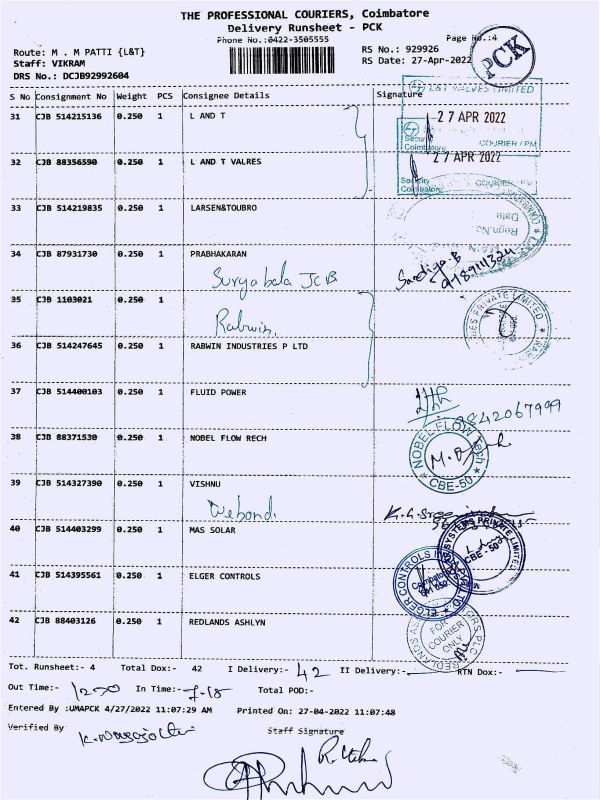 THE PROFESSIONAL COURIERS, Coimbatore
Delivery Runsheet - PCK
Phone No.:0422-3505555
Page No.:4
PCK
Route: M . M PATTI {L&T}
RS No.: 929926
Staff: VIKRAM
RS Date: 27-Apr-2022
DRS No.: DCJB92992604
S No Consignment No Weight PCS Consignee Details Signature
L&T VALVES LIMITED
31 CJB 514215136 0.250 1 L AND T
27 APR 2022
Security COURIER / PM
Coimbatore
32 CJB 88356590 0.250 1 L AND T VALRES
27 APR 2022
Security COURIER / PM
Coimbatore
33 CJB 514219835 0.250 1 LARSEN&TOUBRO
Date
Regn.No
34 CJB 87931730 0.250 1 PRABHAKARAN
Suryabala JCB
35 CJB 1103021 0.250 1
Rabwin
36 CJB 514247645 0.250 1 RABWIN INDUSTRIES P LTD
37 CJB 514400103 0.250 1 FLUID POWER
9842067999
38 CJB 88371530 0.250 1 NOBEL FLOW RECH
NOBEL FLOW Tech
CBE-50
39 CJB 514327390 0.250 1 VISHNU
Webond
40 CJB 514403299 0.250 1 MAS SOLAR
SYSTEMS PRIVATE LIMITED
CBE - 50
41 CJB 514395561 0.250 1 ELGER CONTROLS
ELGER CONTROLS
Coimbatore
42 CJB 88403126 0.250 1 REDLANDS ASHLYN
FOR COURIER ONLY
Tot. Runsheet:- 4 Total Dox:- 42 I Delivery:- 42 II Delivery:- RTN Dox:-
Out Time:- 1200 In Time:- 7-15 Total POD:-
Entered By :UMAPCK 4/27/2022 11:07:29 AM Printed On: 27-04-2022 11:07:48
Verified By
Staff Signature